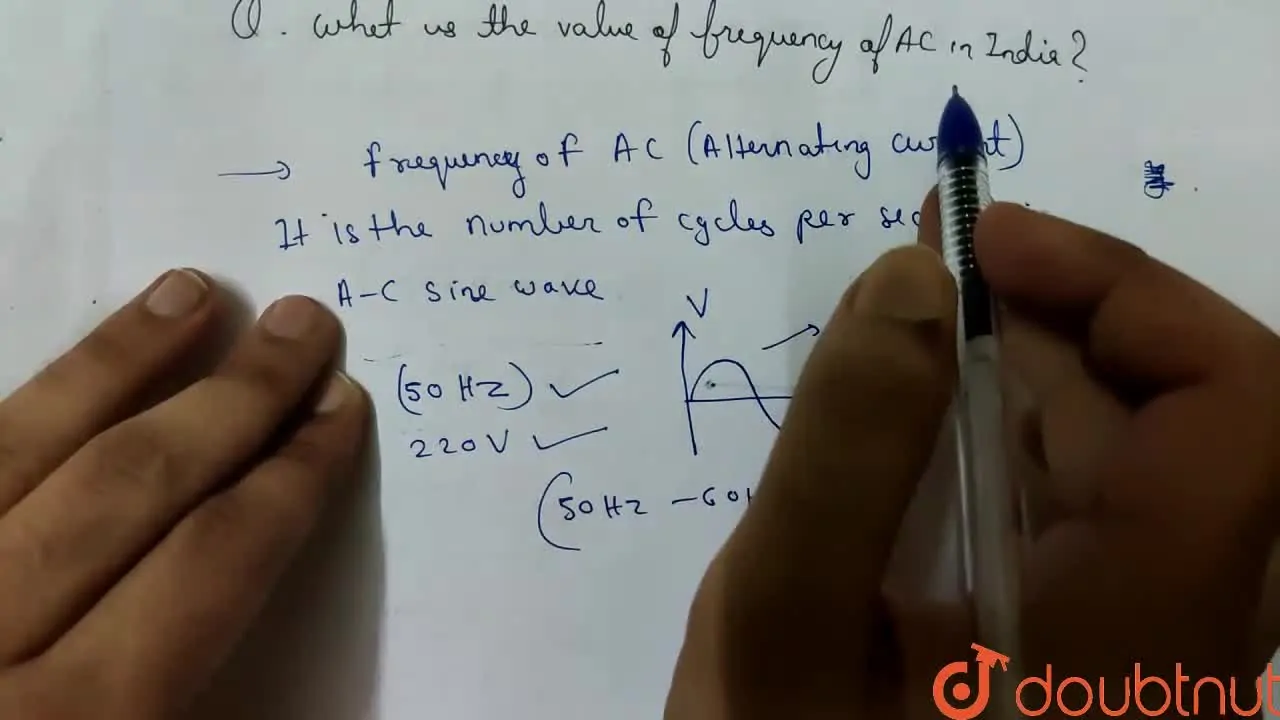 Q. What is the value of frequency of AC in India?
→ frequency of AC (Alternating
It is the number of cycles per
A-C sine wave
V
(50 Hz) ✓
220V ✓
(50Hz - 60H
doubtnut